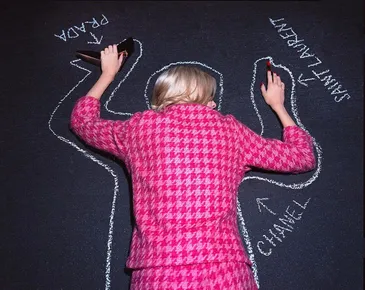 PRADA
SAINT LAURENT
CHANEL